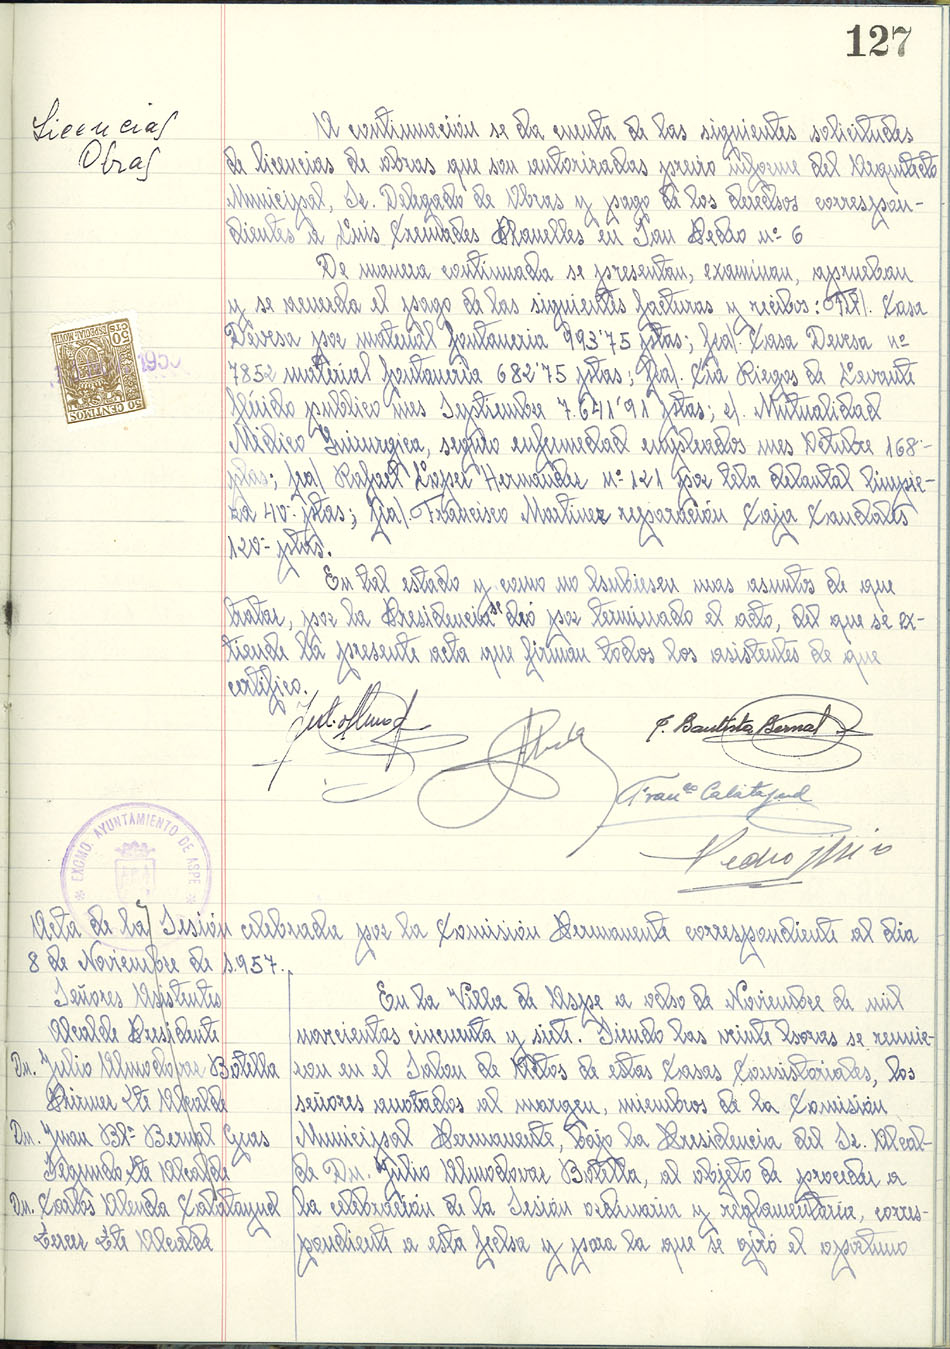 127
Licencias
Obras
A continuación se da cuenta de las siguientes solicitudes
de licencias de obras que son autorizadas previo informe del Arquitecto
Municipal, Sr. Delegado de Obras y pago de los derechos correspon-
dientes a Luis Cremades Planelles en San Pedro nº 6
De manera continuada se presentan, examinan, aprueban
y se acuerda el pago de las siguientes facturas y recibos: Casa
Deversa por material fontaneria 993'75 ptas; fra/. Casa Deversa nº
7852 material fontaneria 682'75 ptas; fra/. Cia Riegos de Levante
flúido publico mes Septiembre 7.641'91 ptas; r/. Mutualidad
Médico Quirurgica, seguro enfermedad empleados mes Octubre 168'-
ptas; fra/ Rafael López Hernández nº 121 por tela delantal limpie-
za 40'- ptas; fra/. Francisco Martinez reparación Caja Caudales
120'- ptas.
En tal estado y como no hubiesen mas asuntos de que
tratar, por la Presidencia se dió por terminado el acto, del que se ex-
tiende la presente acta que firman todos los asistentes de que
certifico.
J. Bautista Bernal
Franco Calatayud
Pedro
50 CTS
ESPECIAL MOVIL
50 CENTIMOS
EXCMO. AYUNTAMIENTO DE ASPE
Acta de la Sesión celebrada por la Comisión Permanente correspondiente al dia
8 de Noviembre de 1.957.
Señores Asistentes
Alcalde Presidente
Dn. Julio Almodovar Botella
Primer Tte Alcalde
Dn. Juan Btª Bernal Cyas
Segundo Tte Alcalde
Dn. Carlos Alenda Calatayud
Tercer Tte Alcalde
En la Villa de Aspe a ocho de Noviembre de mil
novecientos cincuenta y siete. Siendo las veinte horas se reunie-
ron en el Salon de Actos de estas Casas Consistoriales, los
señores anotados al margen, miembros de la Comisión
Municipal Permanente, bajo la Presidencia del Sr. Alcal-
de Dn. Julio Almodovar Botella, al objeto de proceder a
la celebración de la Sesión ordinaria y reglamentaria, corres-
pondiente a esta fecha y para la que se giró el oportuno